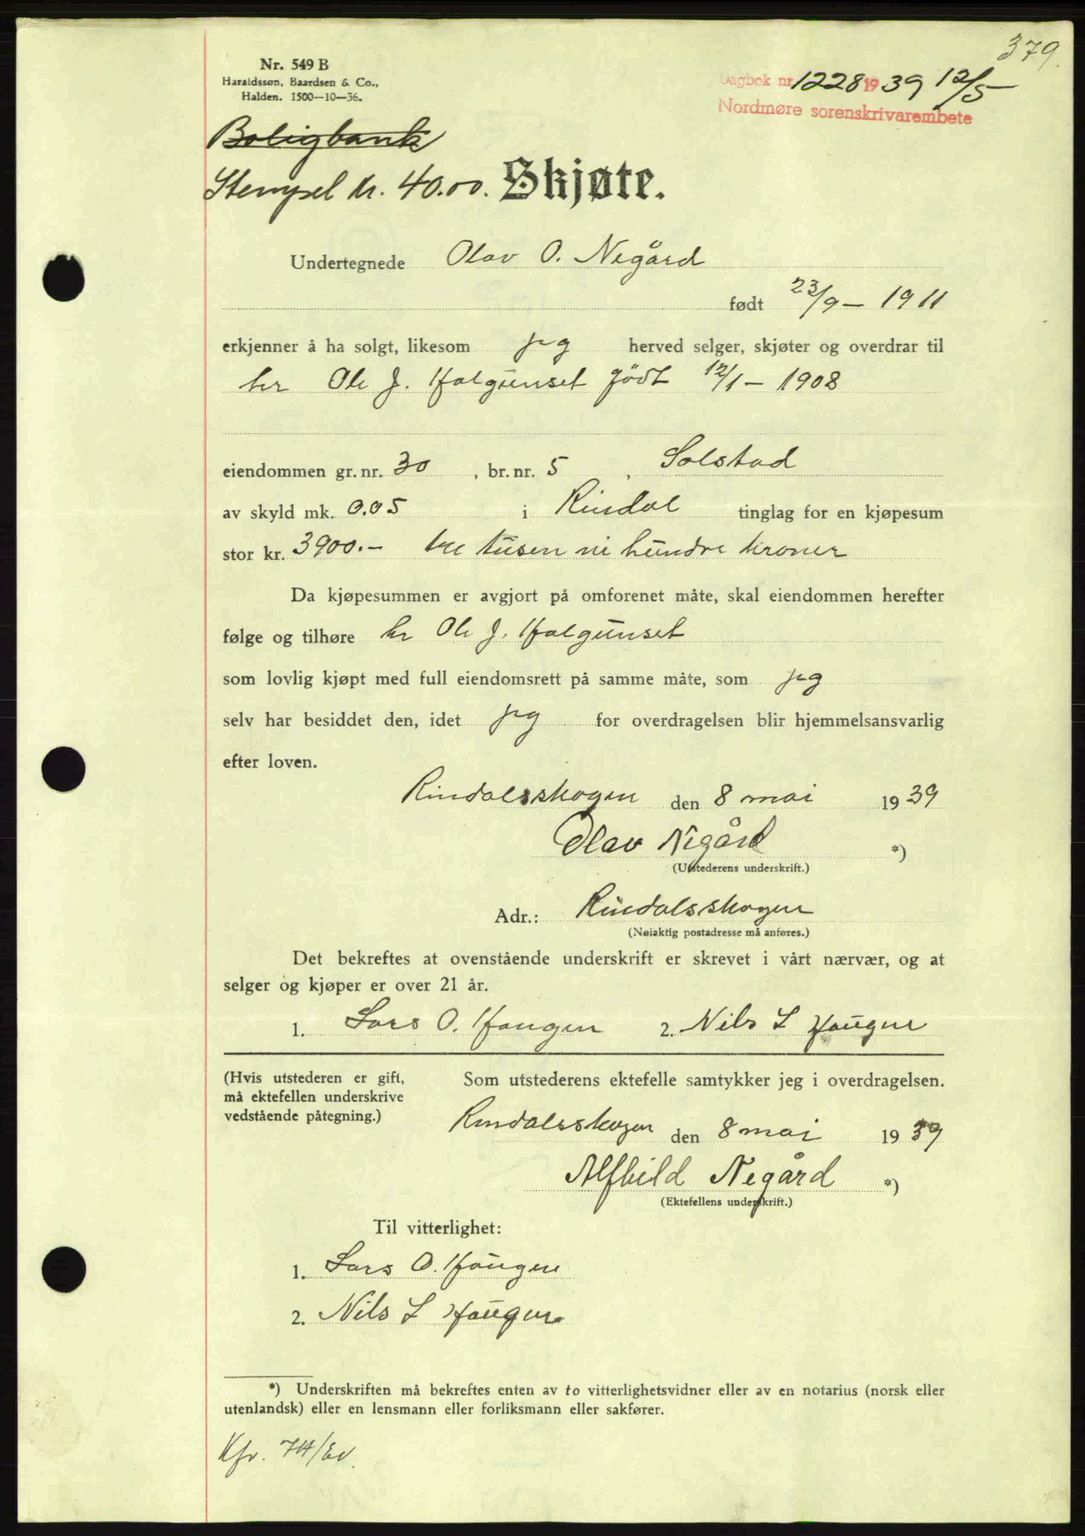 379.
Nr. 549 B
Haraldssøn, Baardsen & Co.,
Halden. 1500—10—36.
Dagbok nr. 1228 1939 12/5
Nordmøre sorenskrivarembete
Boligbank
Stempel kr. 40.00. Skjøte.
Undertegnede Olav O. Negård
født 23/9 — 1911
erkjenner å ha solgt, likesom jeg herved selger, skjøter og overdrar til
hr Ole J. Halgunset født 12/1 — 1908
eiendommen gr. nr. 30, br. nr. 5, Solstad
av skyld mk. 0.05 i Rindal tinglag for en kjøpesum
stor kr. 3900.— tre tusen ni hundre kroner
Da kjøpesummen er avgjort på omforenet måte, skal eiendommen herefter
følge og tilhøre hr Ole J. Halgunset
som lovlig kjøpt med full eiendomsrett på samme måte, som jeg
selv har besiddet den, idet jeg for overdragelsen blir hjemmelsansvarlig
efter loven.
Rindalsskogen den 8 mai 1939
Olav Negård *)
(Utstederens underskrift.)
Adr.: Rindalsskogen
(Nøiaktig postadresse må anføres.)
Det bekreftes at ovenstående underskrift er skrevet i vårt nærvær, og at
selger og kjøper er over 21 år.
1. Lars O. Haugen 2. Nils L Haugen
(Hvis utstederen er gift,
må ektefellen underskrive
vedstående påtegning.)
Som utstederens ektefelle samtykker jeg i overdragelsen.
Rindalsskogen den 8 mai 1939
Alfhild Negård *)
(Ektefellens underskrift.)
Til vitterlighet:
1. Lars O. Haugen
2. Nils L Haugen
*) Underskriften må bekreftes enten av to vitterlighetsvidner eller av en notarius (norsk eller
utenlandsk) eller en lensmann eller forliksmann eller sakfører.
Kfr.